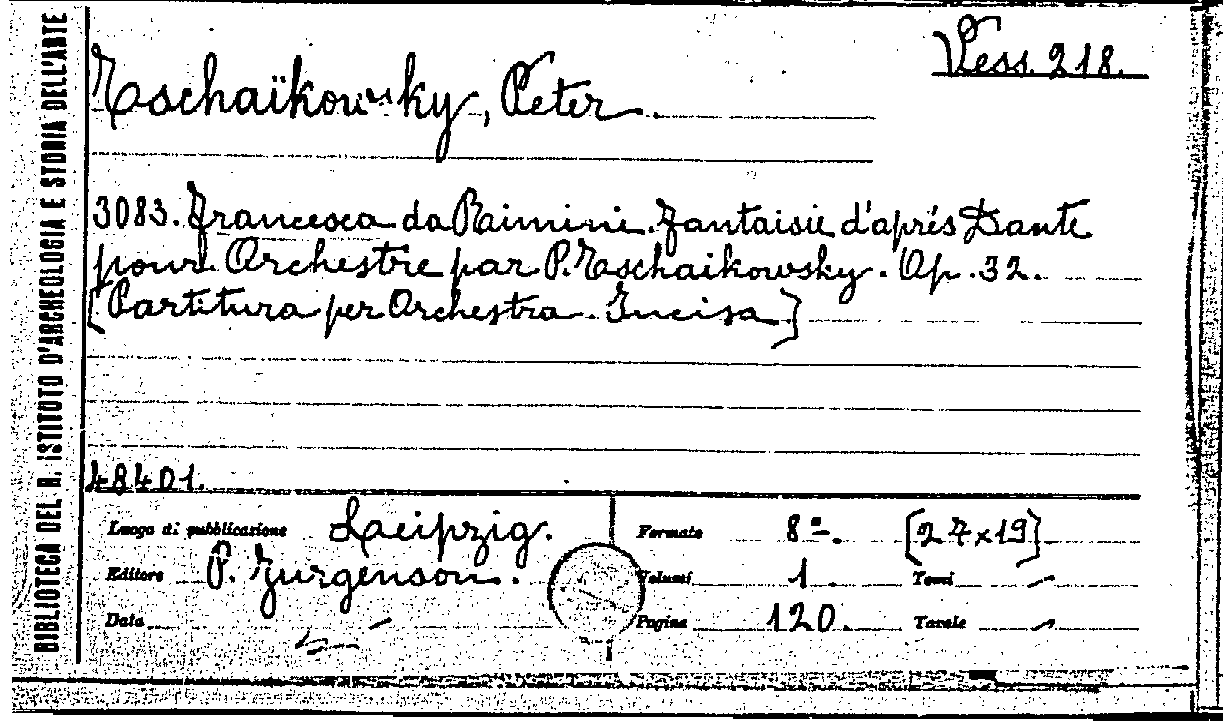 BIBLIOTECA DEL R. ISTITUTO D'ARCHEOLOGIA E STORIA DELL'ARTE
Vess. 218.
Tschaïkowsky, Peter.
3083. Francesca da Rimini. Fantaisie d'aprés Dante
pour Orchestre par P. Tschaikowsky. Op. 32.
[Partitura per Orchestra. Incisa]
48401.
Luogo di pubblicazione Leipzig. Formato 8º. [27x19]
Editore P. Jurgenson. Volumi 1. Tomi –
Data – Pagine 120. Tavole –